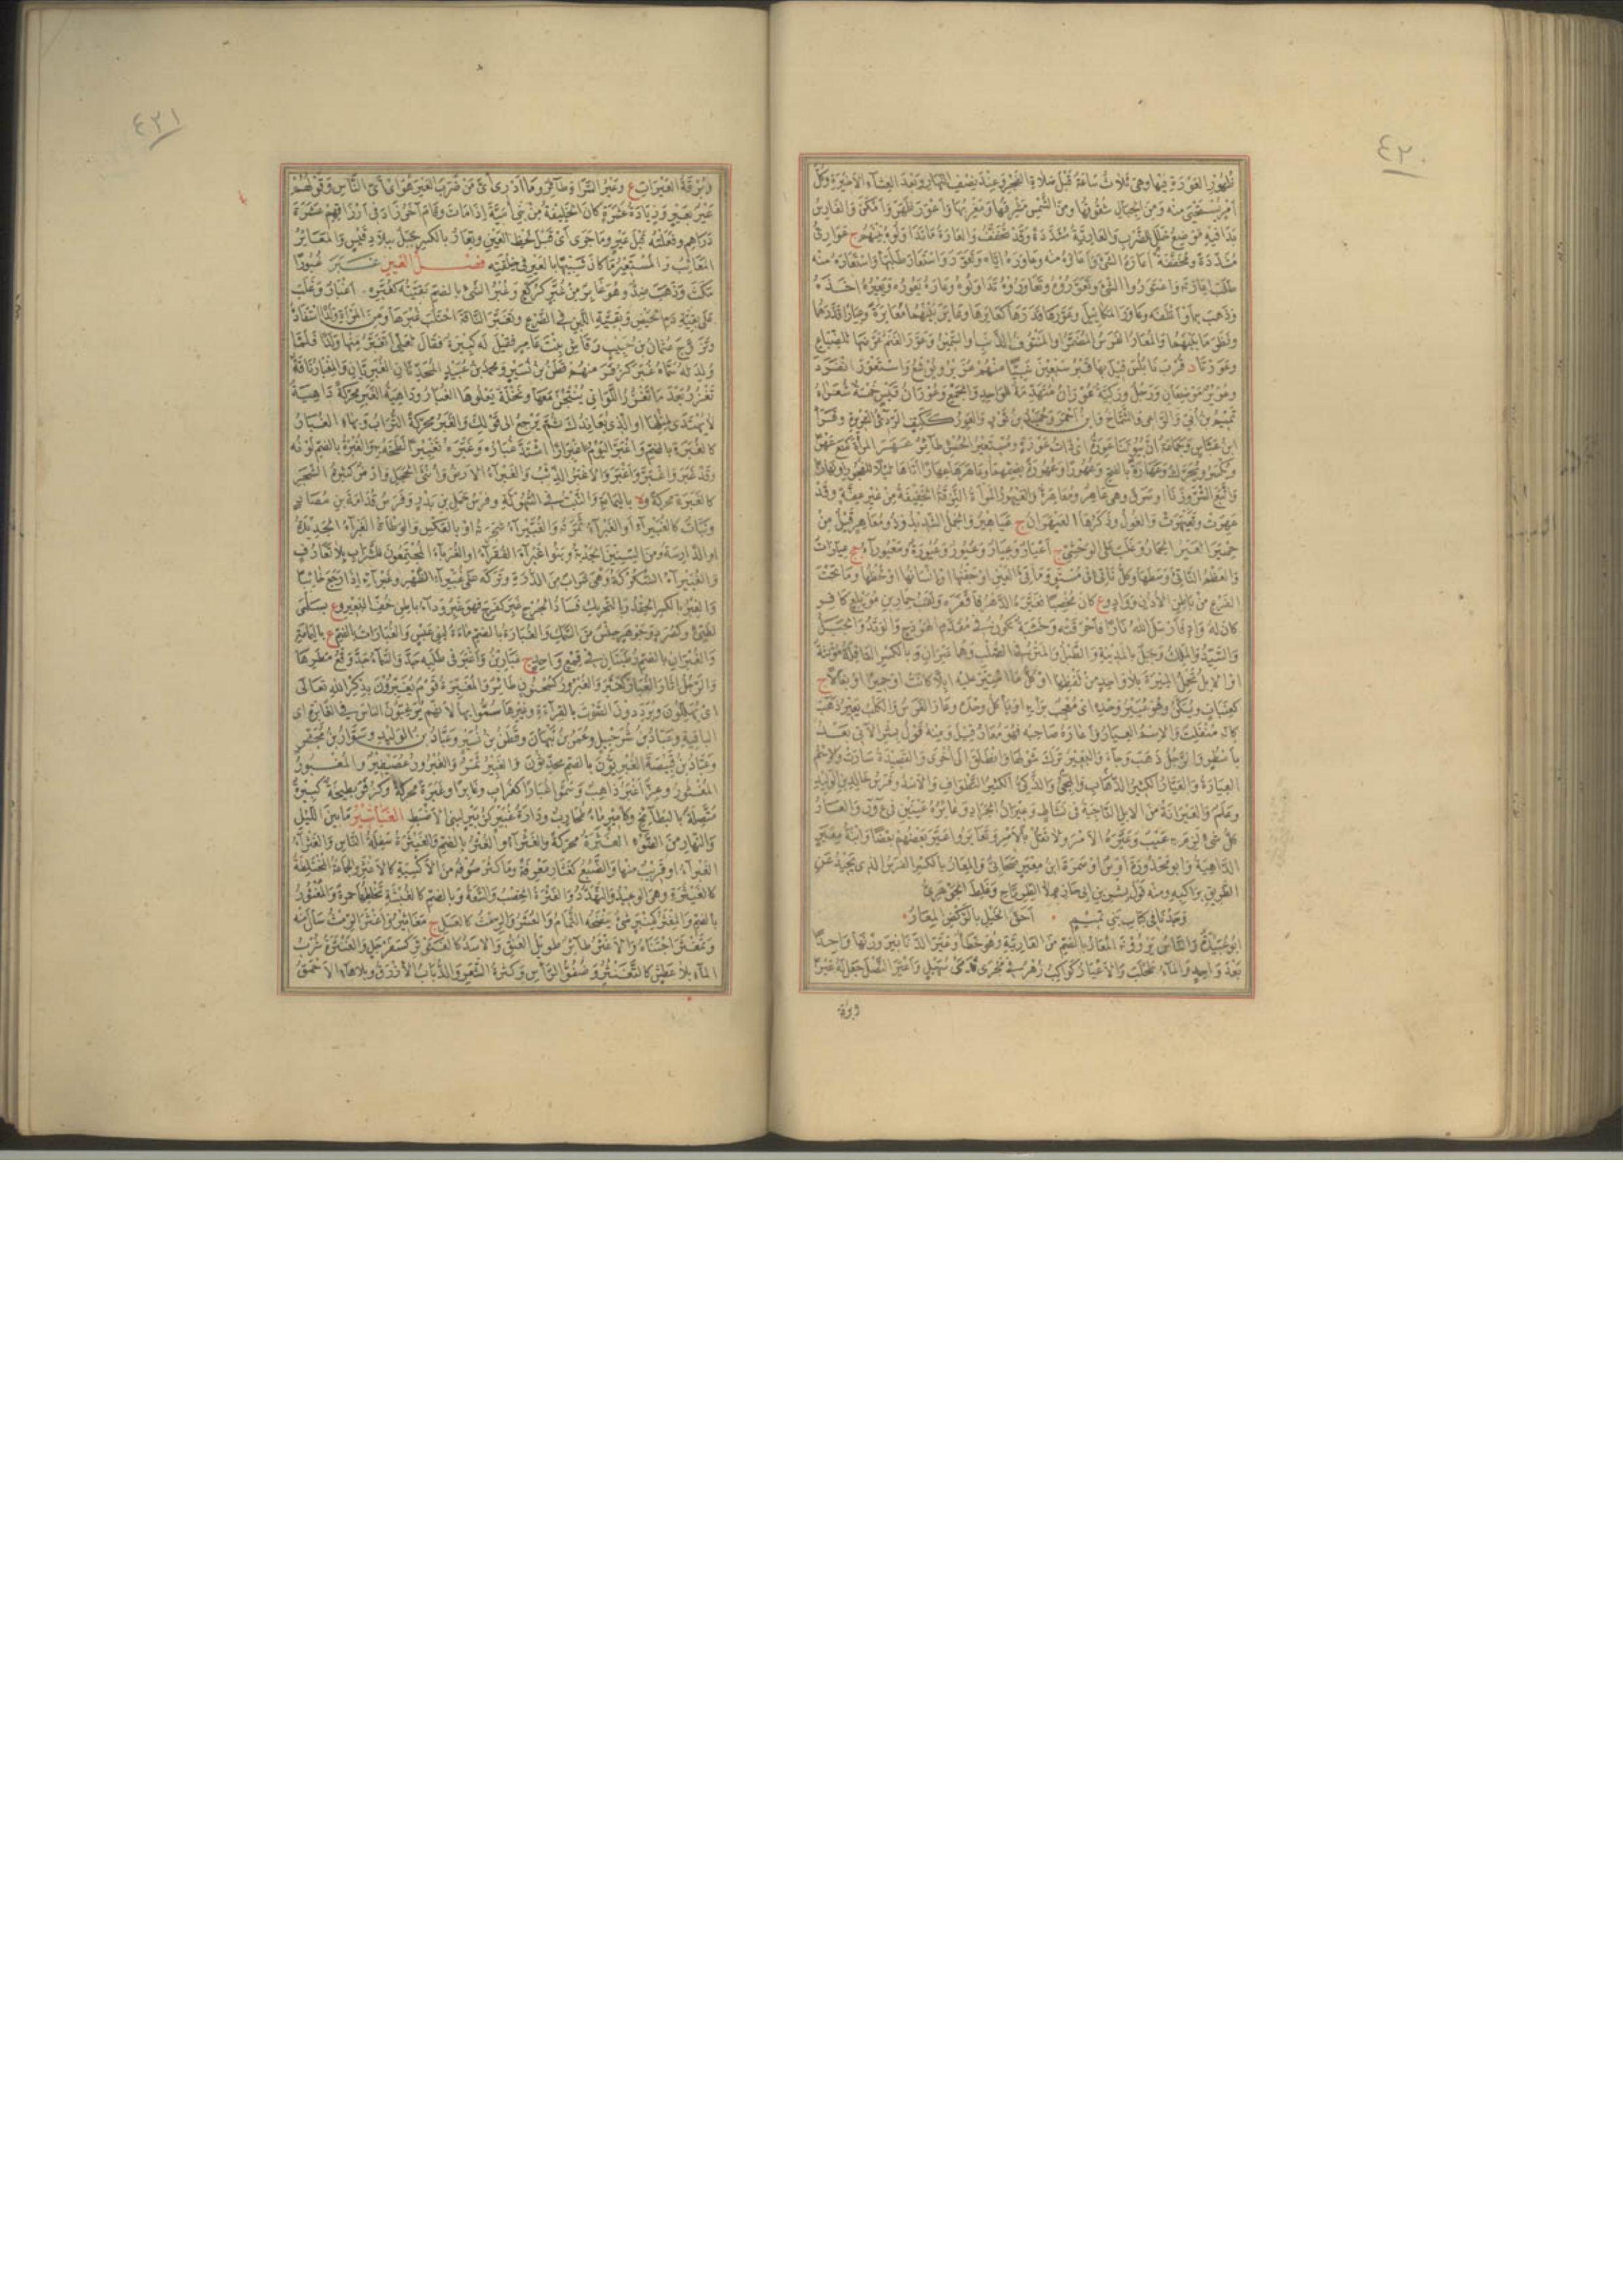 ٤٢٠
ظهور العورة فيها وهي ثلاث ساعة قبل صلاة الفجر وعند نصف النهار وبعد العشاء الآخرة وكل
أمر يستحيى منه ومن الجبال شقوقها ومن الشمس مشرقها ومغربها وأعور ظهر وأمكن والفارس
بدا فيه موضع خلل للضرب والعارية مشددة وقد تخفف والعارة ما تداولوه بينهم ج عواري
مشددة ومخففة أعاره الشيء وأعاره منه وعاوره إياه وتعور واستعار طلبها واستعاره منه
طلب إعارته واعتوروا الشيء وتعوروه وتعاوروه تداولوه وعاره يعوره ويعيره أخذه
وذهب به أو أتلفه وعاور المكاييل وعورها قدرها كعايرها وعاير بينهما معايرة وعيارا قدرهما
ونظر ما بينهما والمعار الفرس المضمر والمنتوف الذنب والسمين وعور الغنم عرضها للضياع
وعورتا د قرب نابلس قيل بها قبر سبعين نبيا منهم عزير ويوشع واستعور انفرد
وعوير موضعان ورجل وركية عوران متهدمة للواحد والجمع وعوران قيس خمسة شعراء
تميم بن أبي والراعي والشماخ وابن أحمر وحميد بن ثور والعور ككتف الرديء السريرة وقرأ
ابن عباس وجماعة إن بيوتنا عورة أي ذات عورة ومستعير الحسن طائر عهر المرأة كمنع عهرا
ويكسر ويحرك وعهارة بالفتح وعهورا وعهورة بضمهما وعاهرها عهارا أتاها ليلا للفجور أو نهارا
أو تبع الشر وزنا أو سرق وهي عاهر ومعاهرة والعيهرة المرأة النزقة الخفيفة من غير عفة وقد
عيهرت وتعيهرت والغول وذكرها العيهران ج عياهير والجمل الشديد وذو معاهر قيل من
حمير العير الحمار وغلب على الوحشي ج أعيار وعيار وعيور وعيورة ومعيوراء جج عيارات
والعظم الناتئ وسطها وكل ناتئ في مستو ومآقي العين أو جفنها أو إنسانها أو لحظها وما تحت
الفرع من باطن الأذن وواد وع كان مخصبا فغيره الدهر فأقفره ولقب حمار بن مويلع كافر
كان له واد فأرسل الله نارا فأحرقته وخشبة تكون في مقدم الهودج والوتد والجبل
والسيد والملك وجبل بالمدينة والطبل والمتن في الصلب وهما عيران وبالكسر القافلة مؤنثة
أو الإبل تحمل الميرة بلا واحد من لفظها أو كل ما امتير عليه إبلا كانت أو حميرا أو بغالا ج
كعنبات ويسكن وهو عيير وحده أي معجب برأيه أو يأكل وحده وعار الفرس والكلب يعير ذهب
كأنه منفلت والاسم العيار وأعاره صاحبه فهو معار قيل ومنه قول بشر الآتي بعد
بأسطر والرجل ذهب وجاء والبعير ترك شولها وانطلق إلى أخرى والقصيدة سارت والاسم
العيارة والعيار الكثير الذهاب والمجيء والذكي الكثير التطواف والأسد وفرس خالد بن الوليد
وعلم والعيرانة من الإبل الناجية في نشاط وعيران الجراد وعائرة عينين في ع ور والعار
كل شيء لزم به عيب وعيره الأمر ولا تقل بالأمر وتعايروا عير بعضهم بعضا وابنة معير
الداهية وأبو محذورة أوس أو سمرة ابن معير صحابي والمعار بالكسر الفرس الذي يحيد عن
الطريق براكبه ومنه قول بشر بن أبي خازم لا الطرماح وغلط الجوهري
وجدنا في كتاب بني تميم ٠ أحق الخيل بالركض المعار
أبو عبيدة والناس يروونه المعار بالضم من العارية وهو خطأ وعير الدنانير وزنها واحدا
بعد واحد والماء طحلب والأعيار كواكب زهر في مجرى قدمي سهيل وأعير النصل جعل له عيرا
وبرقة
٤٢١
وبرقة العيرات ع وعير السراة طائر وما أدري أي من ضرب العير هو أي أي الناس وقولهم
عير بعير وزيادة عشرة كان الخليفة من بني أمية إذا مات وقام آخر زاد في أرزاقهم عشرة
دراهم وفعلته قبل عير وما جرى أي قبل لحظ العين وتعار بالكسر جبل ببلاد قيس والمعاير
المعائب والمستعير ما كان شبيها بالعير في خلقته فصل الغين غبر غبورا
مكث وذهب ضد وهو غابر من غبر كركع وغبر الشيء بالضم بقيته كغبره ج أغبار وغلب
على بقية دم الحيض وبقية اللبن في الضرع وتغبر الناقة احتلب غبرها ومن المرأة ولدا استفاده
وتزوج عثمان بن حبيب رقاش بنت عامر فقيل له كبيرة فقال لعلي أتغبر منها ولدا فلما
ولد له سماه غبر كزفر منهم قطن بن نسير ومحمد بن عبيد المحدثان الغبريان والمغبار ناقة
تغزر بعد ما تغزر اللواتي ينتجن معها ونخلة يعلوها الغبار وداهية الغبر محركة داهية
لا يهتدى لمثلها أو الذي يعاندك ثم يرجع إلى قولك والغبر محركة التراب وبهاء الغبار
كالغبرة بالضم واغبر اليوم اغبرارا اشتد غباره وغبره تغبيرا لطخه به والغبرة بالضم لونه
وقد غبر وأغبر واغبر والأغبر الذئب والغبراء الأرض وأنثى الحجل وأرض كثيرة الشجر
كالغبرة محركة وة باليمامة والنبت في السهولة وفرس حمل بن بدر وفرس قدامة بن مصاد
ونبات كالغبيراء أو الغبراء ثمرته والغبيراء شجرته أو بالعكس والوطأة الغبراء الجديدة
أو الدارسة ومن السنين الجدبة وبنو غبراء الفقراء أو الغرباء المجتمعون للشراب بلا تعارف
والغبيراء السكركة وهي شراب من الذرة وتركه على غبيراء الظهر وغبرائه إذا رجع خائبا
والغبر بالكسر الحقد وبالتحريك فساد الجرح غبر كفرح فهو غبر وداء بباطن خف البعير وع بسلمى
لطيئ وكصرد وجوهر جنس من السمك والغبارة بالضم ماءة لبني عبس والغبارات بالضم ع باليمامة
والغبران بالضم رطبتان في قمع واحد ج غبارين وأغبر في طلبه جد والسماء جد وقع مطرها
والرجل أثار الغبار كغبر والغبرون كسحنون طائر والمغبرة قوم يغبرون بذكر الله تعالى
أي يهللون ويرددون الصوت بالقراءة وغيرها سموا بها لأنهم يرغبون الناس في الغابرة أي
الباقية وعباد بن شرحبيل وعمر بن نبهان وقطن بن نسير وعباد بن الوليد وسوار بن مجشر
وعباد بن قبيصة الغبريون بالضم محدثون والغبير تمر والغبرور عصيفير والمغبور
المغثور وعز أغبر ذاهب وسموا غبارا كغراب وغابرا وغبرة محركة وكزفر بطيحة كبيرة
متصلة بالبطائح وكأمير ماء لمحارب ودارة غبير كزبير لبني الأضبط الغباشير ما بين الليل
والنهار من الضوء الغثرة محركة والغثراء والغثر بالضم والغيثرة سفلة الناس والغثراء
الغبراء أو قريب منها والضبع كغثار معرفة وما كثر صوفه من الأكسية كالأغثر والجماعة المختلطة
كالغيثرة وهي الوعيد والتهدد والغثرة الخصب والسعة وبالضم كالغبشة تخلطها حمرة والمغثور
بالضم والمغثر كمنبر شيء ينضحه الثمام والعشر والرمث كالعسل ج مغاثير وأغثر الرمث سال منه
وتمغثر اجتناه والأغثر طائر طويل العنق والأسد كالغثوثر كسفرجل والغنثرة شرب
الماء بلا عطش كالتغنثر وضفو الرأس وكثرة الشعر والذباب الأزرق وبلا هاء الأحمق